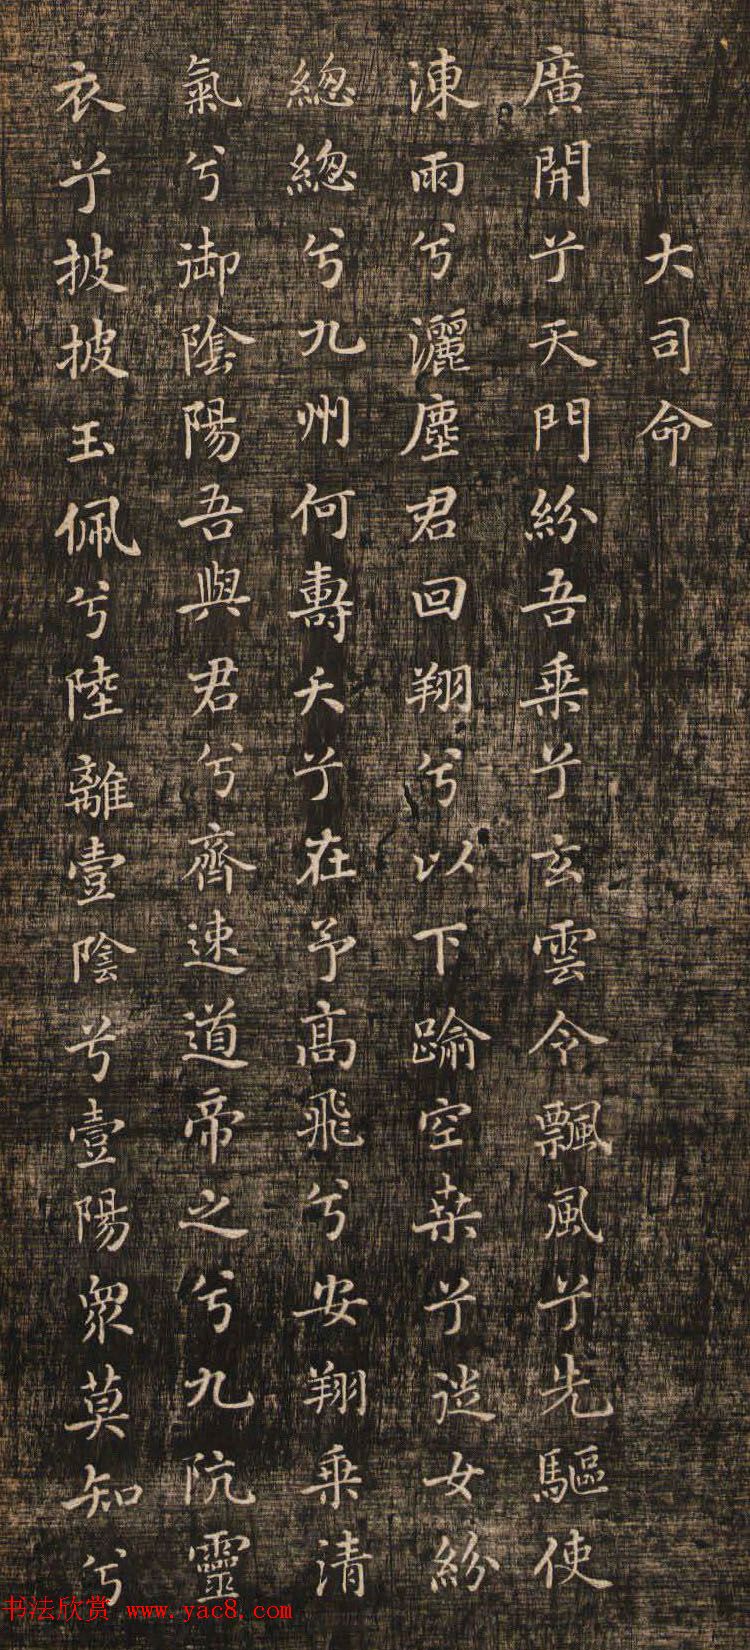 大司命
廣開兮天門紛吾乗兮玄雲令飄風兮先驅使
涷雨兮灑塵君回翔兮以下踰空桒兮從女紛
緫緫兮九州何壽夭兮在予髙飛兮安翔乗清
氣兮御陰陽吾與君兮齊速道帝之兮九阬靈
衣兮披披玉佩兮陸離壹陰兮壹陽衆莫知兮
书法欣赏 www.yac8.com